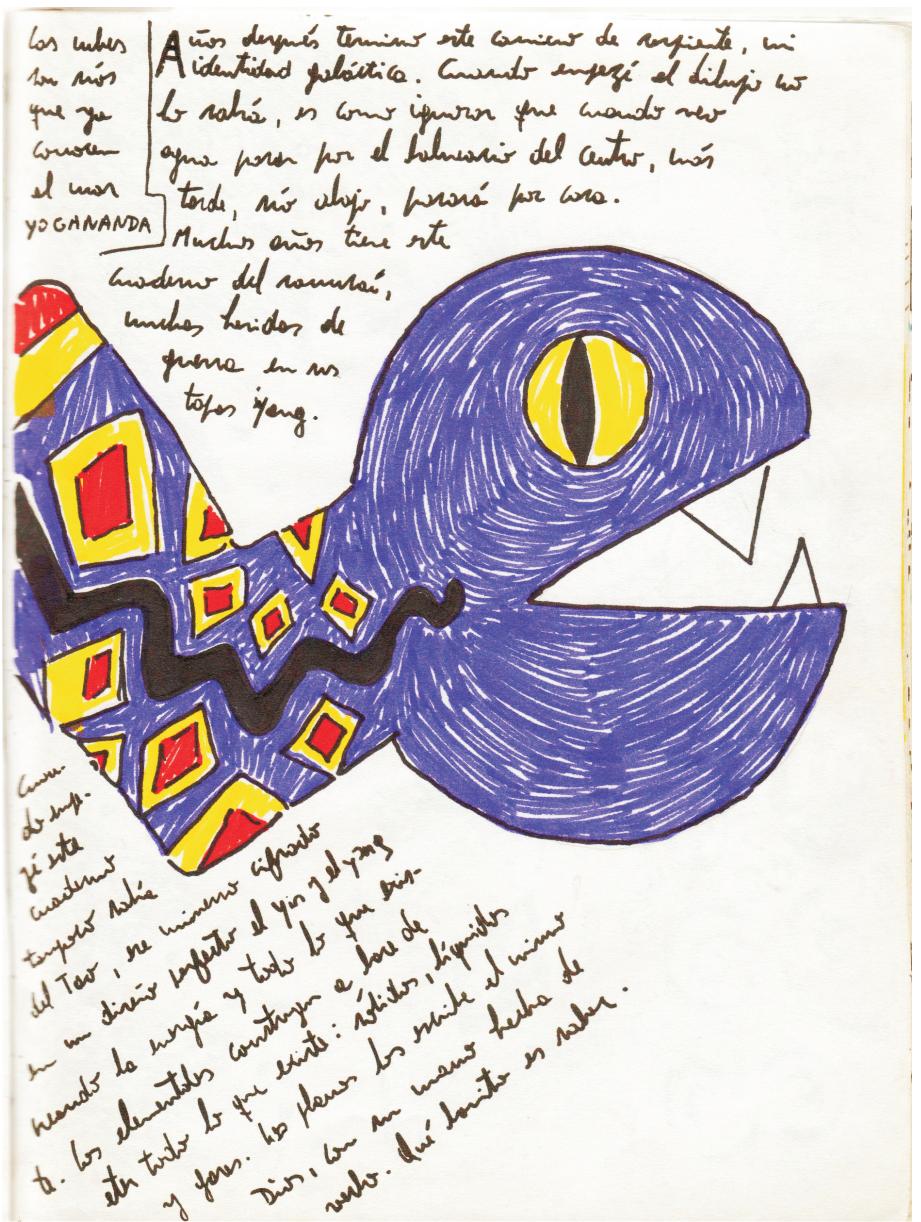 Las nubes
son ríos
que ya
conocen
el mar
YOGANANDA
Años después termino este comienzo de serpiente, mi
identidad galáctica. Cuando empezé el dibujo no
lo sabía, es como ignorar que cuando veo
agua pasar por el balneario del centro, más
tarde, río abajo, pasará por casa.
Muchos años tiene este
cuaderno del samurái,
muchas heridas de
guerra en sus
tapas yang.
Cuan-
do empe-
zé este
cuaderno
tampoco sabía
del Tao, ese universo cifrado
en un diseño perfecto el yin y el yang
creando la energía y todo lo que exis-
te. Los elementales construyen a base de
éter todo lo que existe: sólidos, líquidos
y gases. Los planos los escribe el mismo
Dios, con su mano hecha de
verbo. Qué bonito es saber.